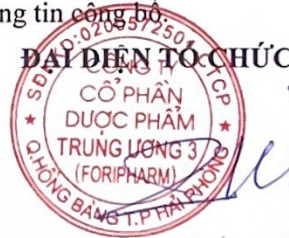 ng tin công bố.
ĐẠI DIỆN TỔ CHỨC
CÔNG TY
CỔ PHẦN
DƯỢC PHẨM
TRUNG ƯƠNG 3
(FORIPHARM)
Q.HỒNG BÀNG T.P HẢI PHÒNG